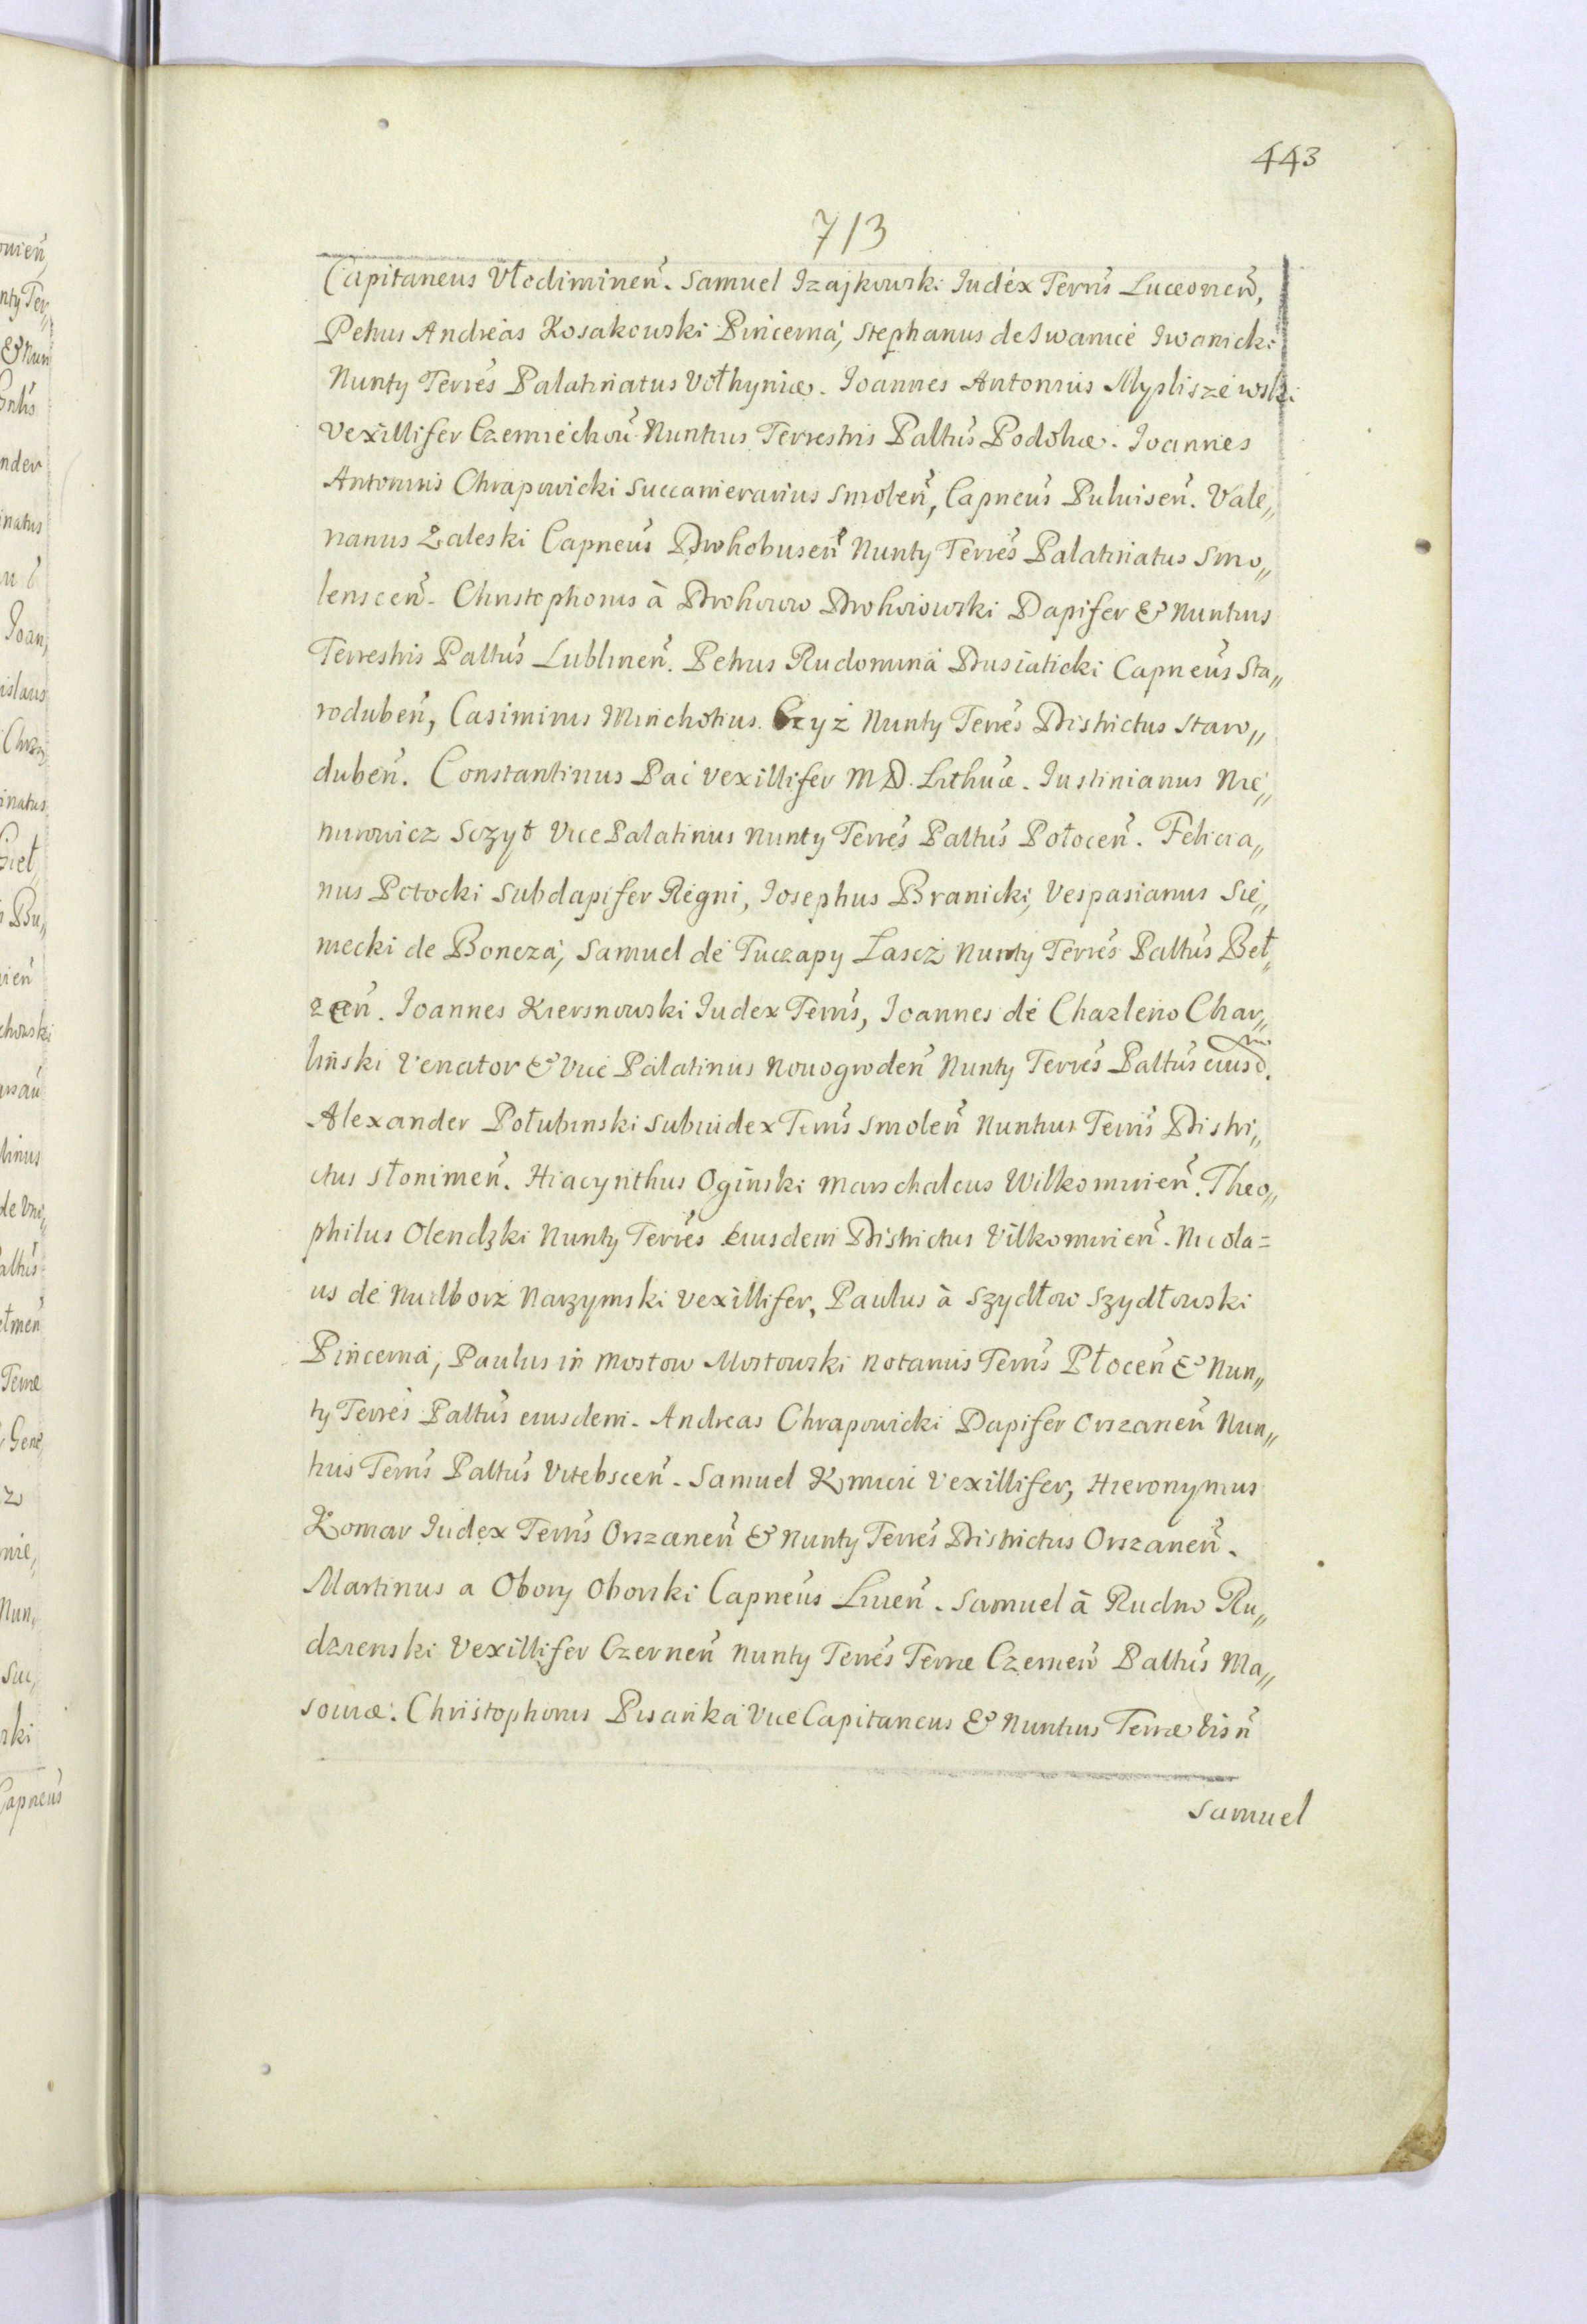 443
713
Capitaneus Vłodimireñ. Samuel Izajkowski Iudex Terrīs Luceorieñ,
Petrus Andreas Kosakowski Pincerna, Stephanus de Iwanice Iwanicki
Nunty Terrēs Palatinatus Vołhyniæ. Ioannes Antonius Mypliszewski
Vexillifer Czerniechoū Nuntius Terrestris Paltūs Podoliæ. Ioannes
Antonius Chrapowicki Succamerarius Smoleñ, Capneūs Puluiseñ. Vale„
rianus Zaleski Capneūs Drohobuseñ Nunty Terrēs Palatinatus Smo„
lensceñ. Christophorus à Drohowo Drohoiowski Dapifer & Nuntius
Terrestris Paltūs Lublineñ. Petrus Rudomina Dusiaticki Capneūs Sta„
rodubeñ, Casimirus Minchotius Czyż Nunty Terrēs Districtus Staro„
dubeñ. Constantinus Pac Vexillifer M D. Lithuæ. Iustinianus Nie„
mirowicz Sczyt Vice Palatinus Nunty Terrēs Paltūs Połoceñ. Felicia„
nus Potocki Subdapifer Regni, Iosephus Branicki, Vespasianus Sie„
niecki de Boncza, Samuel de Tuczapy Lascz Nunty Terrēs Paltūs Beł„
zeñ. Ioannes Kiersnowski Iudex Terrīs, Ioannes de Chazleno Char„
liński Venator & Vice Palatinus Nouogrodeñ Nunty Terrēs Paltūs eiusd.
Alexander Połubinski Subiudex Terrīs Smoleñ Nuntius Terrīs Distri„
ctus Słonimeñ. Hiacynthus Oginski Marschalcus Wilkomirieñ. Theo„
philus Olendzki Nunty Terrēs Eiusdem Districtus Vilkomirieñ. Nicola=
us de Nuilborz Narzymski Vexillifer, Paulus à Szydłow Szydłowski
Pincerna, Paulus in Mostow Mostowski Notarius Terrīs Płoceñ & Nun„
ty Terrēs Paltūs eiusdem. Andreas Chrapowicki Dapifer Orszaneñ Nun„
tius Terrīs Paltūs Vitebsceñ. Samuel Kmicic Vexillifer, Hieronymus
Komar Iudex Terrīs Orszaneñ & Nunty Terrēs Districtus Orszaneñ.
Martinus a Obory Oborski Capneūs Liueñ. Samuel à Rudno Ru„
dzienski Vexillifer Czerneñ Nunty Terrēs Terræ Czerneñ Paltūs Ma„
souiæ. Christophorus Pisanka Vice Capitaneus & Nuntius Terræ Visñ
Samuel